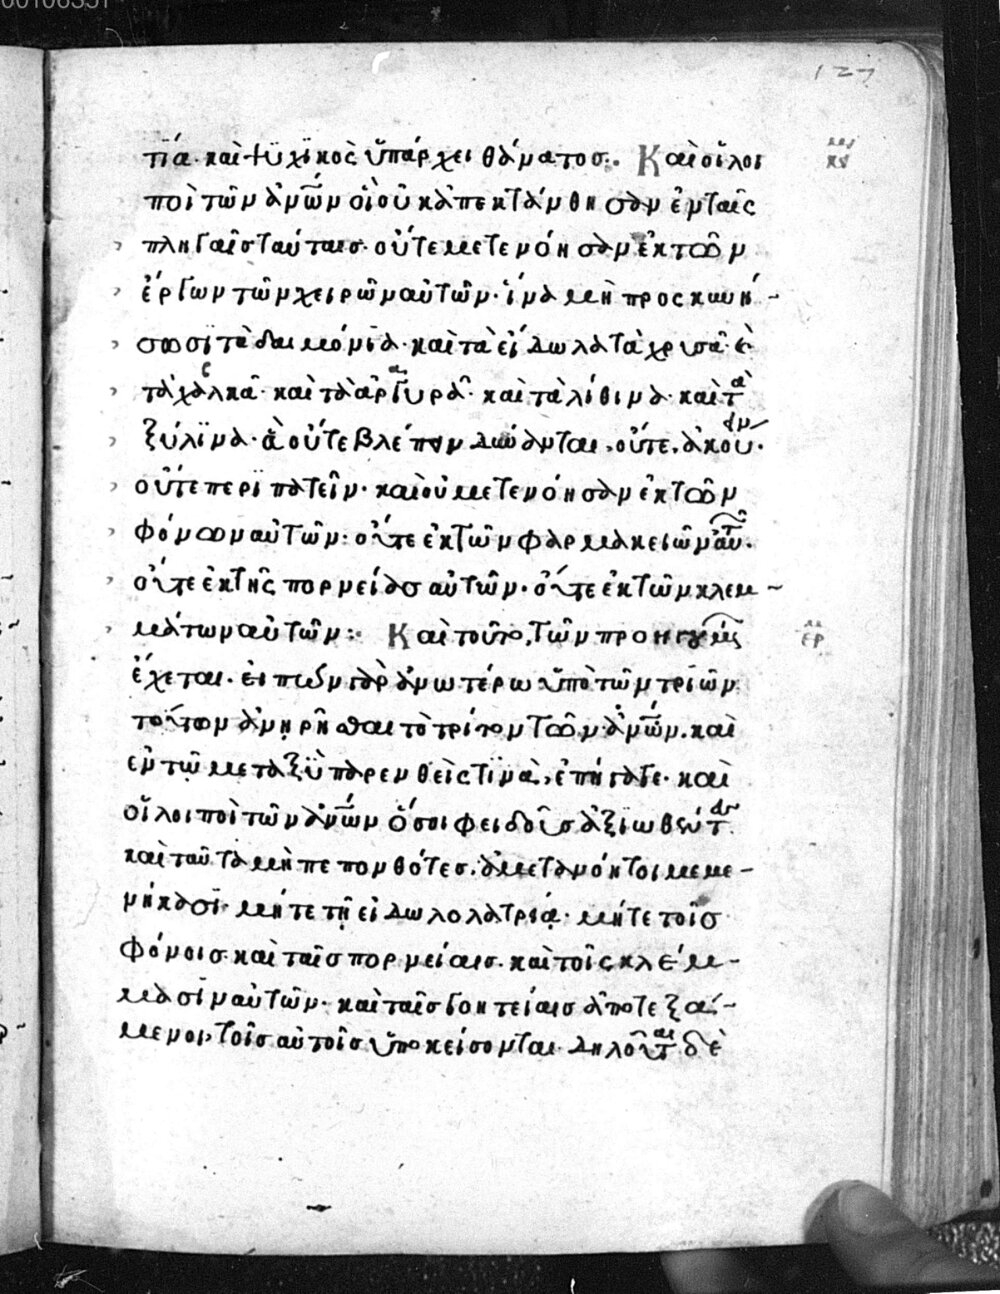 127
τία· καὶ ψυχϊκὸς ὑπάρχει θάνατος·. Καὶ οἱ λοι
ποὶ τῶν ἀνῶν οἱ οὐκ ἀπεκτάνθησαν ἐν ταῖς
πληγαῖς ταύταις· οὔτε μετενόησαν ἐκ τῶν
ἔργων τῶν χειρῶν αὐτῶν· ἵνα μὴ προσκυνή-
σωσϊ τὰ δαιμόνϊα· καὶ τὰ εἴδωλα τὰ χρυσᾶ· κ
τὰ χαλκᾶ· καὶ τὰ ἀργυρᾶ· καὶ τὰ λίθινα· καὶ τὰ
ξύλϊνα· ἃ οὔτε βλέπειν δύνανται, οὔτε ἀκούειν·
οὔτε περϊπατεῖν· καὶ οὐ μετενόησαν ἐκ τῶν
φόνων αὐτῶν· οὔτε ἐκ τῶν φαρμακειῶν αὐτ·
οὔτε ἐκ τῆς πορνείας αὐτῶν· οὔτε ἐκ τῶν κλεμ-
μάτων αὐτῶν·. Καὶ τοῦτο, τῶν προηγουμ
ἔχεται· εἰπὼν γὰρ ἀνωτέρω ὑπὸ τῶν τριῶν
τούτων ἀνῃρῆσθαι τὸ τρίτον τῶν ἀνῶν· καὶ
ἐν τῷ μεταξὺ παρενθείς τϊνα, ἐπήγαγε· καὶ
οἱ λοιποὶ τῶν ἀνῶν ὅσοι φειδοῦς ἀξιωθέντ
καὶ ταῦτα μὴ πεπονθότες· ἀμετανόητοι μεμε-
νήκασϊ· μήτε τῇ εἰδωλολατρίᾳ· μήτε τοῖς
φόνοις· καὶ ταῖς πορνείαις· καὶ τοῖς κλέμ-
μασϊν αὐτῶν· καὶ ταῖς γοητείαις ἀποτεξά-
μενοι, τοῖς αὐτοῖς ὑποκείσονται· δηλοῦται δὲ